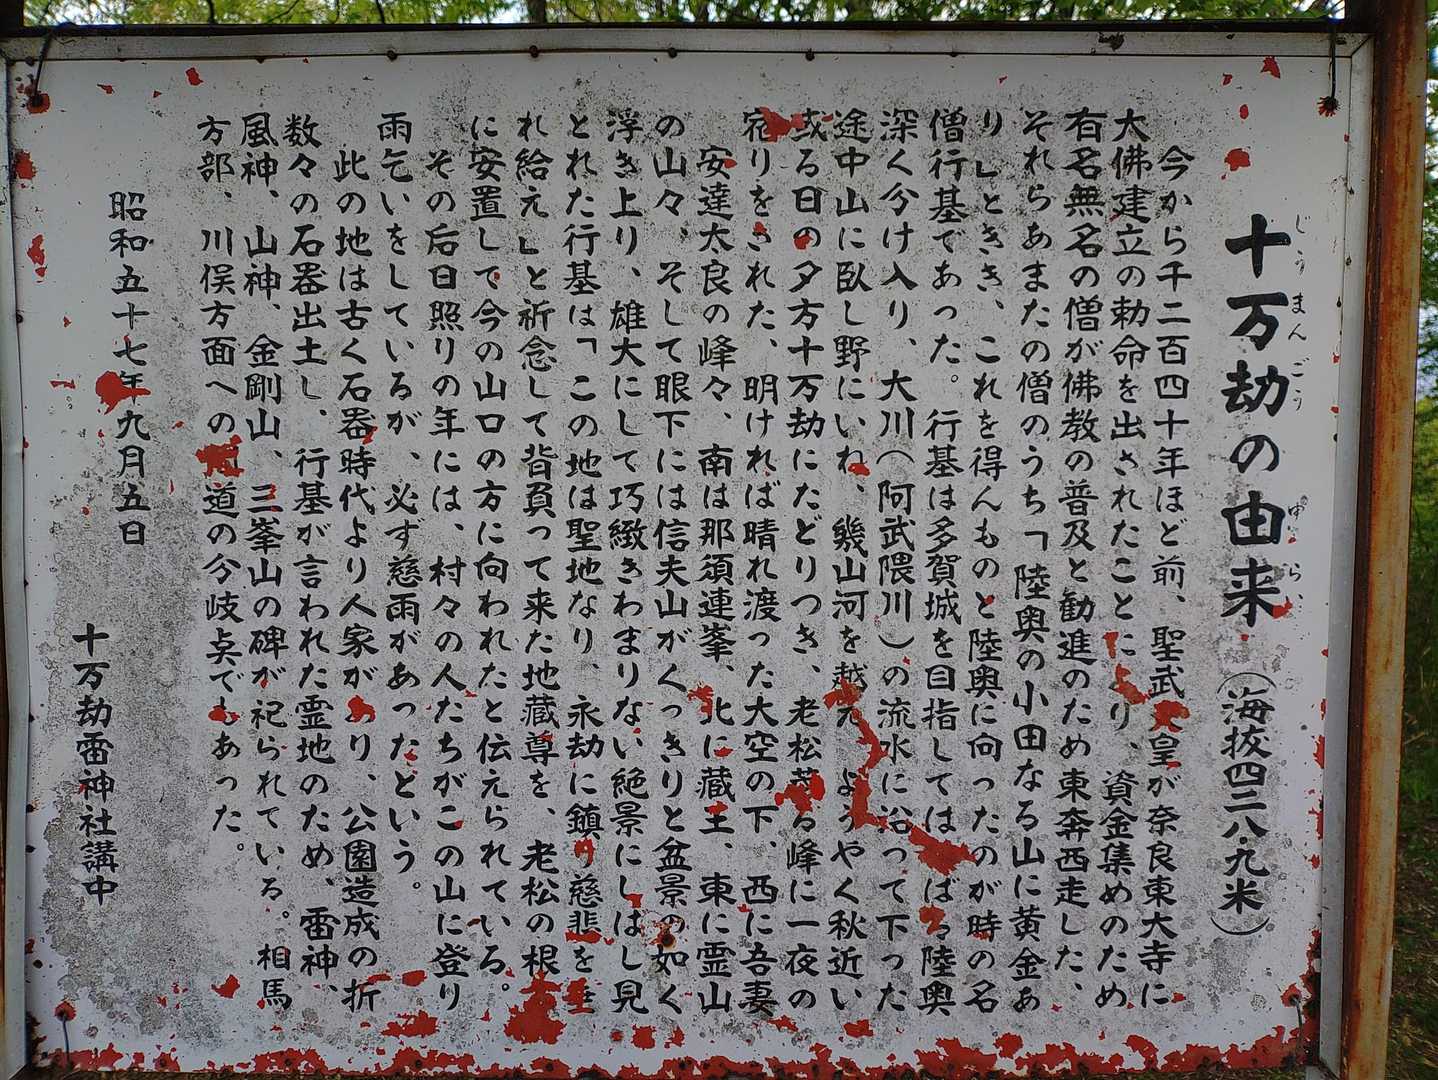 十万劫の由来（海抜四二八・九米）
じゅうまんごう ゆ らい
今から千二百四十年ほど前、聖武 皇が奈良東大寺に
大佛建立の勅命を出されたことにより、資金集めのため
有名無名の僧が佛教の普及と勧進のため東奔西走した、
それらあまたの僧のうち「陸奥の小田なる山に黄金あ
り」ときき、これを得んものと陸奥に向ったのが時の名
僧行基であった。行基は多賀城を目指してはるばる陸奥
深く今け入り、大川（阿武隈川）の流水に沿って下った
途中山に臥し野にいね、幾山河を越え ようやく秋近い
或る日の夕方十万劫にたどりつき、老松茂る峰に一夜の
宿りをされた、明ければ晴れ渡った大空の下、西に吾妻
安達太良の峰々、南は那須連峯、北に蔵王、東に霊山
の山々、そして眼下には信夫山がくっきりと盆景の如く
浮き上り、雄大にして巧緻きわまりない絶景にしばし見
とれた行基は「この地は聖地なり、永劫に鎮り慈悲を垂
れ給え」と祈念して背負って来た地蔵尊を、老松の根
に安置して今の山口の方に向われたと伝えられている。
その后日照りの年には、村々の人たちがこの山に登り
雨乞いをしているが、必ず慈雨があったという。
此の地は古く石器時代より人家があり、公園造成の折
数々の石器出土し、行基が言われた霊地のため、雷神、
風神、山神、金剛山、三峯山の碑が祀られている。相馬
方部、川俣方面への 道の今岐点でもあった。
昭和五十七年九月五日
十万劫雷神社講中